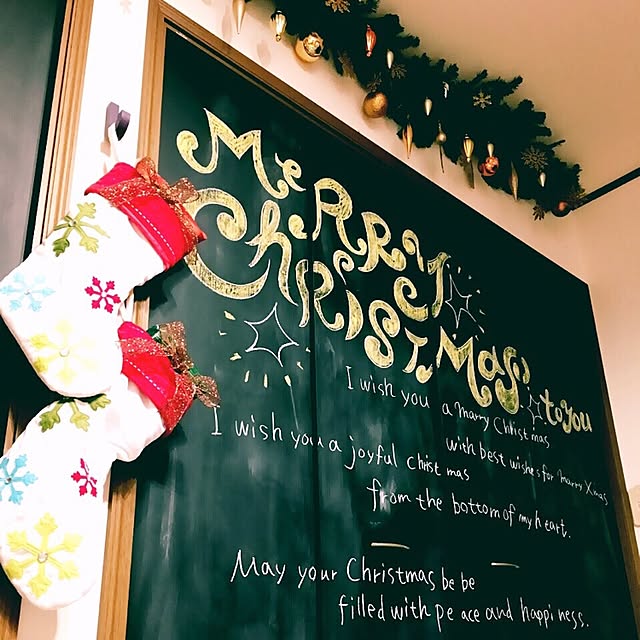 MeRRy
ChRiSTMaS
to you
I wish you a marry Christmas
with best wishes for marry Xmas
I wish you a joyful christ mas
from the bottom of my heart.
May your Christmas be be
filled with pe ace and happi ness.